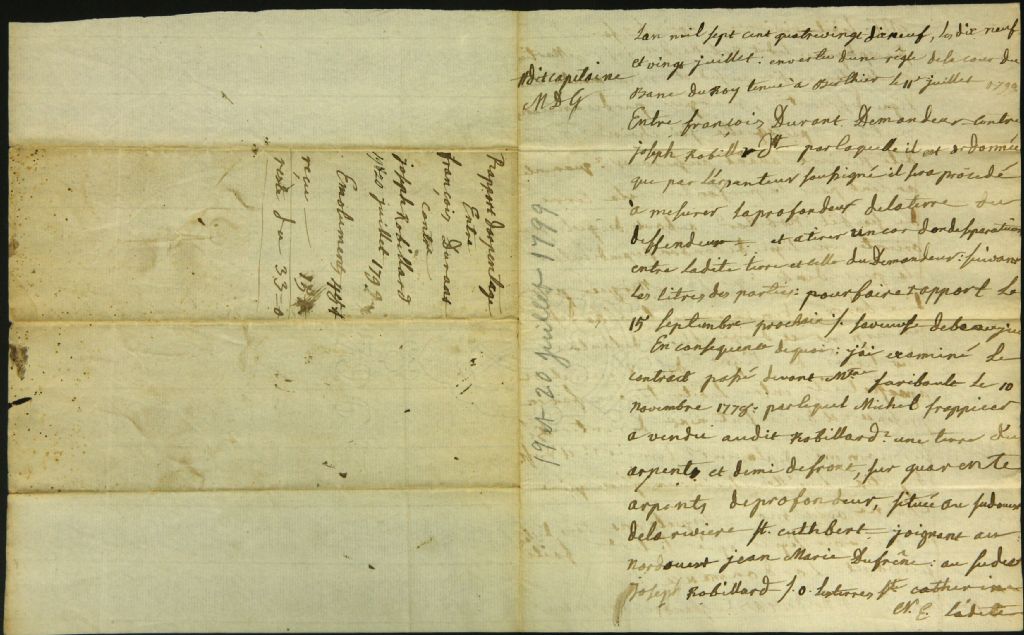 Rapport darpentage
Entre
françois Durant
contre
joseph Robillard
19 & 20 juillet 1799
Emolument
reçu
reste du 33-0
19 et 20 juillet 1799
dit capitaine
M D G
Lan mil sept cent quatrevingt dixneuf, les dix neuf
et vingt juillet: envertu dune règle de la cour du
Banc du Roy tenue à Berthier le 11 juillet 1799
Entre françois Durant Demandeur contre
joseph Robillard par laquelle il est ordonnée
que par l'arpenteur soussigné il sera procédé
à mesurer la profondeur delaterre du
deffendeur et atirer un cordon deséparation
entre ladite terre et celle du Demandeur: suivant
les titres des parties: pour faire rapport le
15 Septembre prochain
En consequence dequoi: j'ai examiné le
contract passé devant Mtre faribault le 10
novembre 1778: parlequel Michel
a vendu audit Robillard: une terre
arpents et demi defront, sur quarente
arpents deprofondeur, située au sudouest
delariviere St. cuthbert joignant au
nordouest jean Marie Dufrêne: au sudest
joseph Robillard S.O. lesterres Ste catherine
N. E. ladite